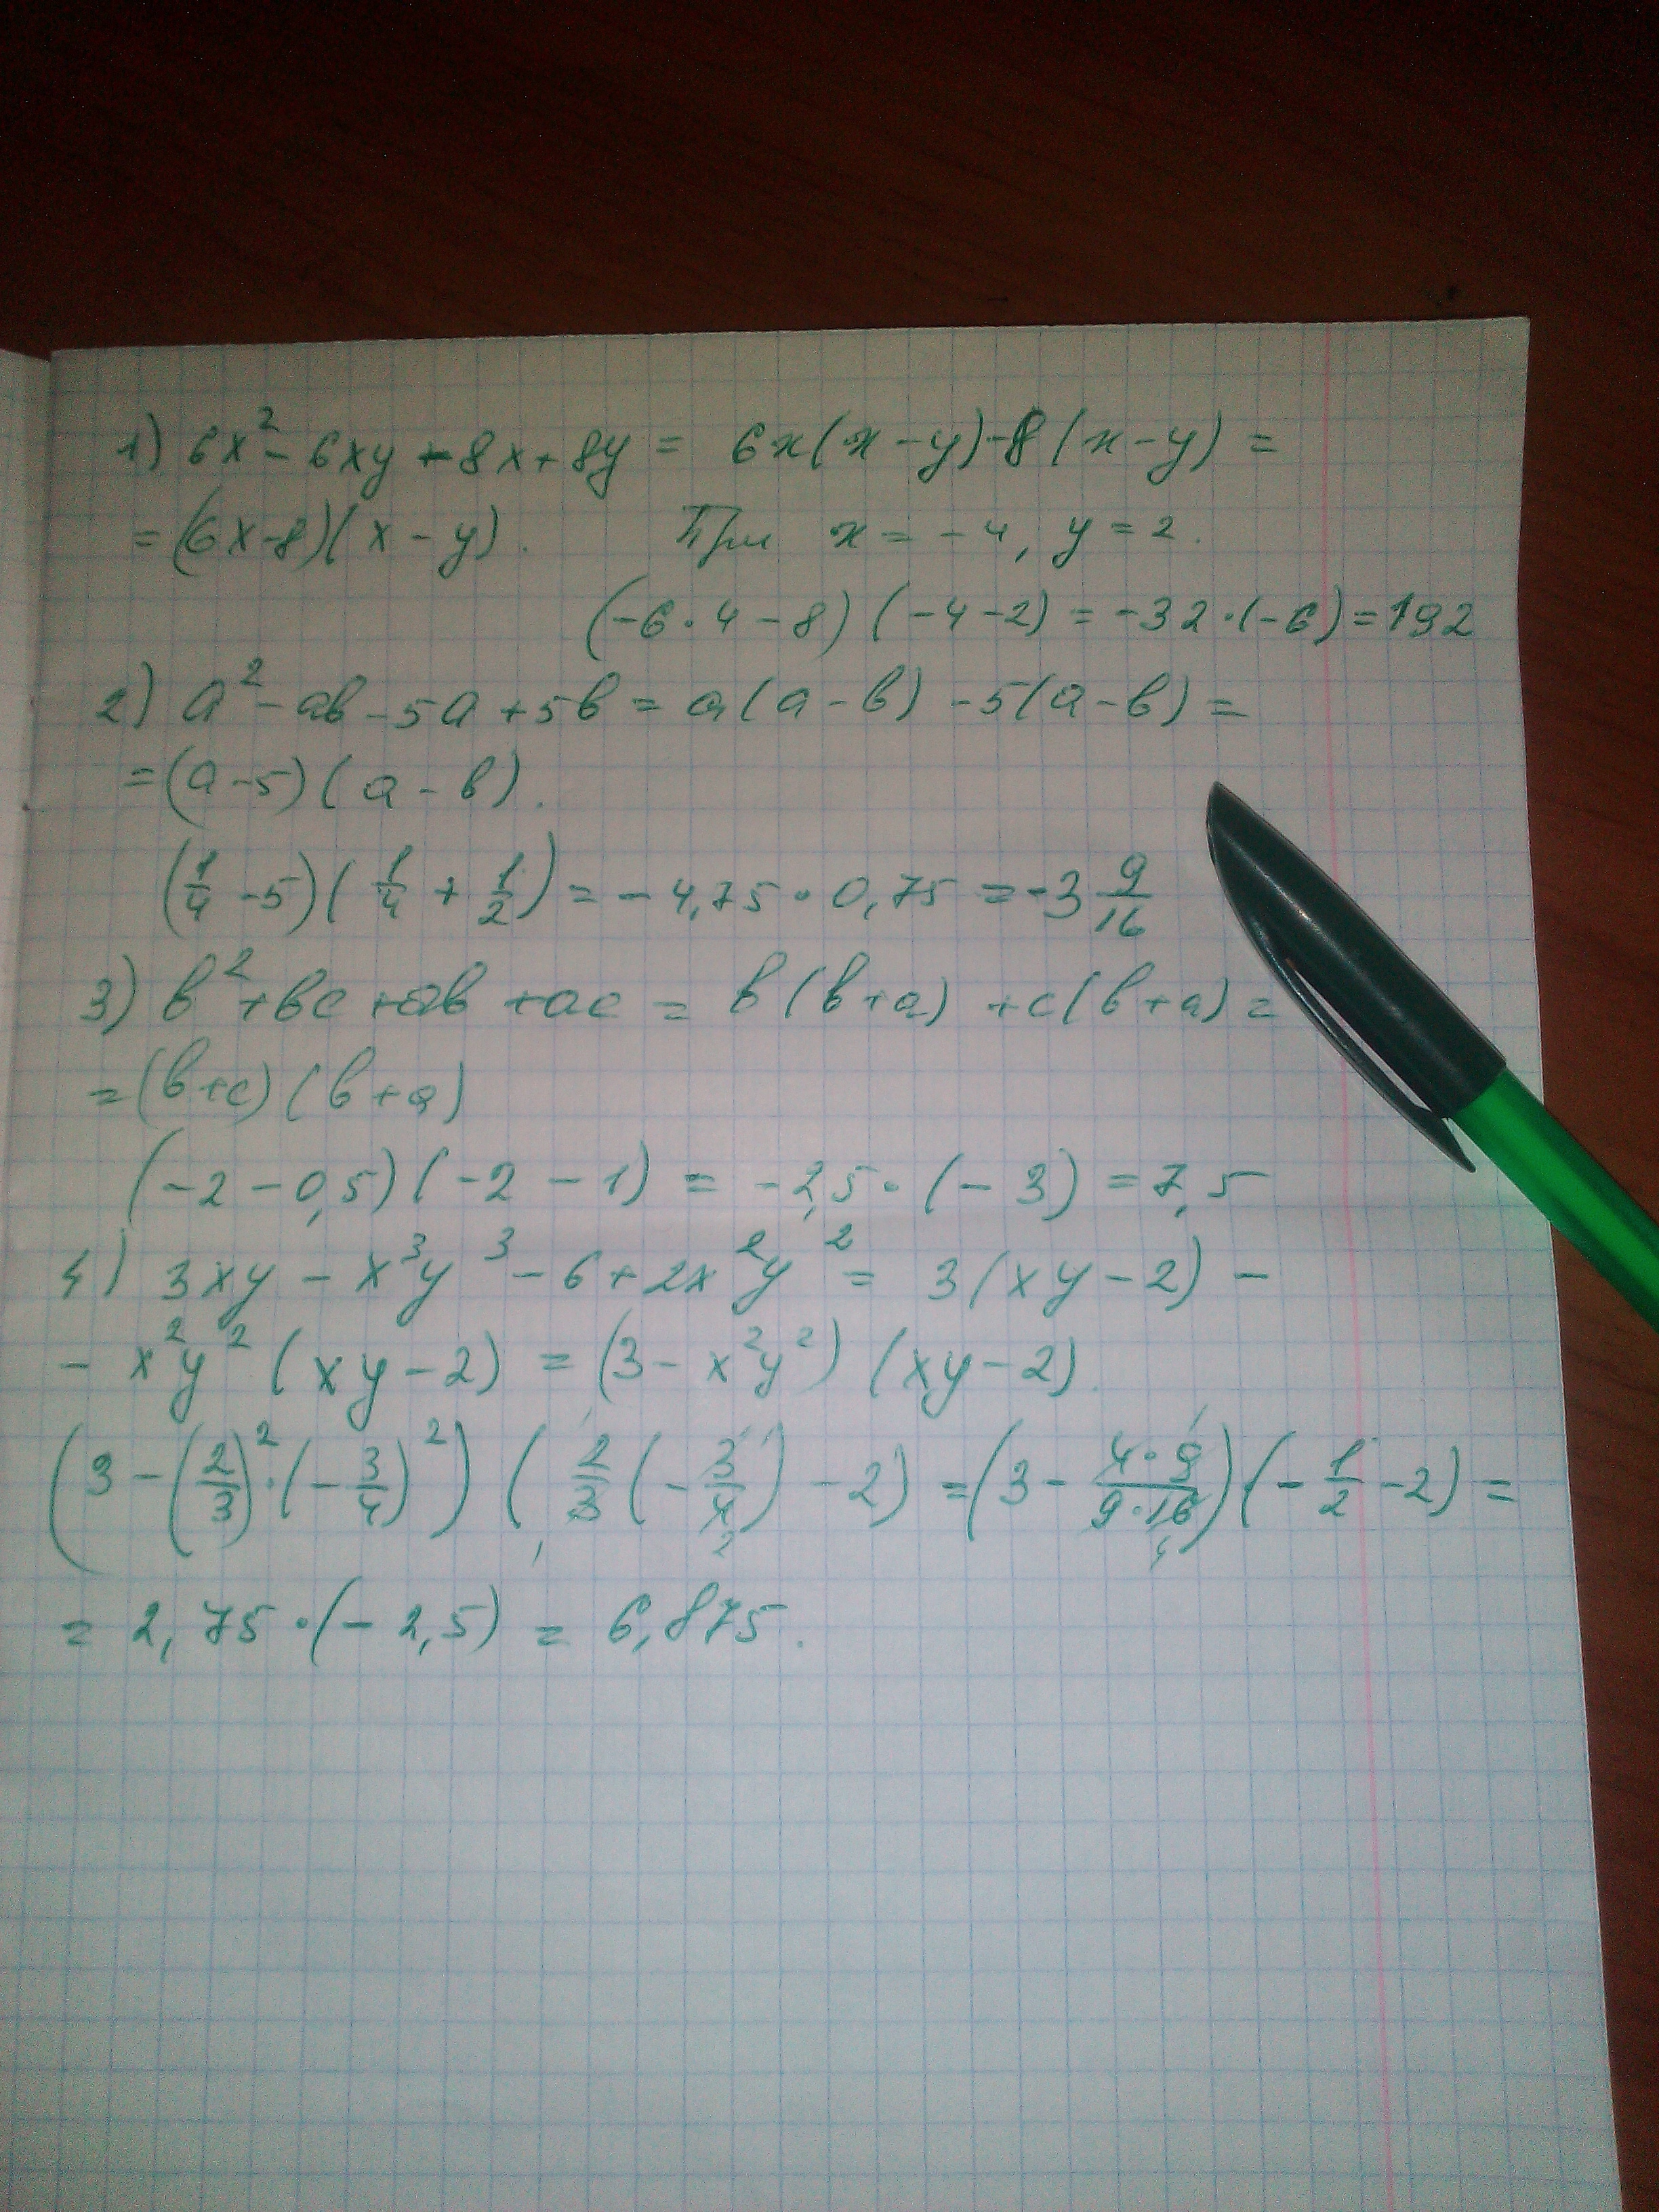 1) 6x² - 6xy - 8x + 8y = 6x(x - y) - 8(x - y) =
= (6x - 8)(x - y). При x = -4, y = 2.
(-6·4 - 8)(-4 - 2) = -32·(-6) = 192
2) a² - ab - 5a + 5b = a(a - b) - 5(a - b) =
= (a - 5)(a - b).
(1/4 - 5)(1/4 + 1/2) = -4,75·0,75 = -3 9/16
3) b² + bc + ab + ac = b(b + a) + c(b + a) =
= (b + c)(b + a)
(-2 - 0,5)(-2 - 1) = -2,5·(-3) = 7,5
4) 3xy - x³y³ - 6 + 2x²y² = 3(xy - 2) -
- x²y²(xy - 2) = (3 - x²y²)(xy - 2).
(3 - (2/3)²·(-3/4)²)(2/3(-3/4) - 2) = (3 - 4·9/9·16)(-1/2 - 2) =
= 2,75·(-2,5) = 6,875.